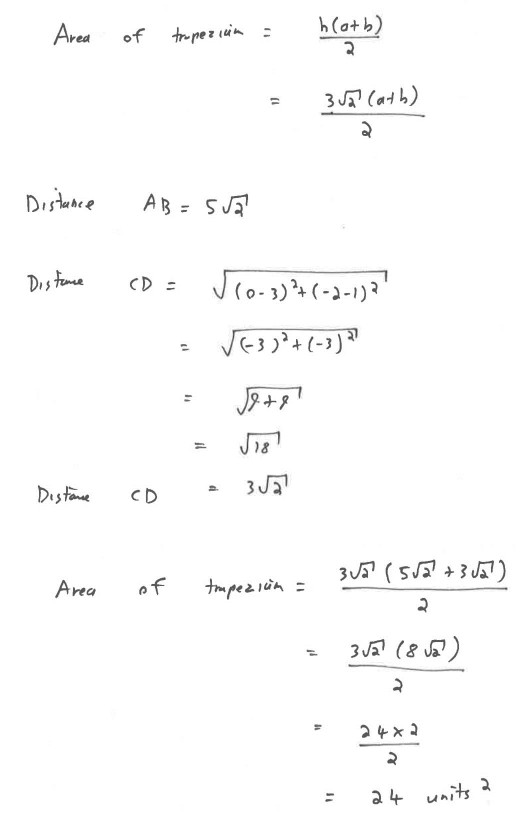 Area of trapezium = h(a+b)/2
= 3√2 (a+b)/2
Distance AB = 5√2
Distance CD = √((0-3)²+(-2-1)²)
= √((-3)²+(-3)²)
= √(9+9)
= √18
Distance CD = 3√2
Area of trapezium = 3√2 (5√2 + 3√2)/2
= 3√2 (8√2)/2
= 24×2/2
= 24 units²